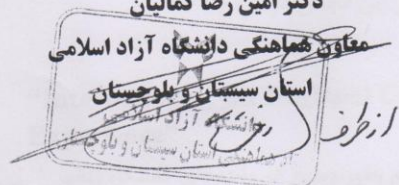 دکتر امین رضا کمالیان
معاون هماهنگی دانشگاه آزاد اسلامی
استان سیستان و بلوچستان
از طرف
دانشگاه آزاد اسلامی
استان سیستان و بلوچستان